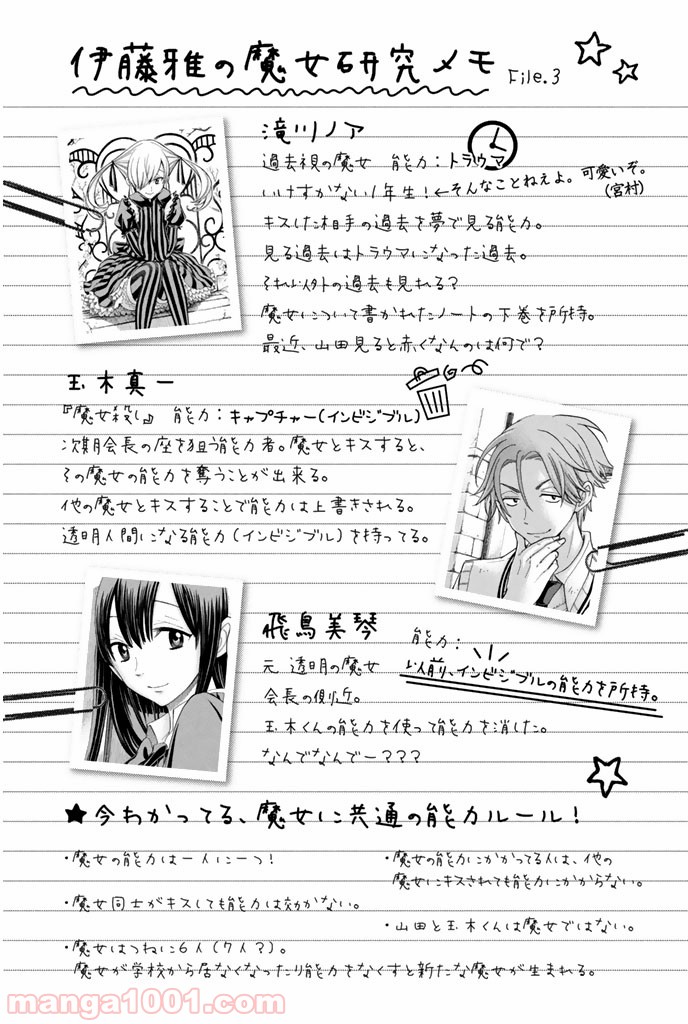 伊藤雅の魔女研究メモ File.3
滝川ノア
過去視の魔女 能力:トラウマ
いけすかない1年生!←そんなことねえよ。可愛いぞ。
(宮村)
キスした相手の過去を夢で見る能力。
見る過去はトラウマになった過去。
それ以外の過去も見れる?
魔女について書かれたノートの下巻を所持。
最近、山田見ると赤くなんのは何で?
玉木真一
『魔女殺し』 能力:キャプチャー(インビジブル)
次期会長の座を狙う能力者。魔女とキスすると、
その魔女の能力を奪うことが出来る。
他の魔女とキスすることで能力は上書きされる。
透明人間になる能力(インビジブル)を持ってる。
飛鳥美琴
能力:
以前、インビジブルの能力を所持。
元 透明の魔女
会長の側近。
玉木くんの能力を使って能力を消した。
なんでなんでー???
★今わかってる、魔女に共通の能力ルール!
・魔女の能力は一人に一つ!
・魔女同士がキスしても能力は効かない。
・魔女はつねに6人(7人?)。
魔女が学校から居なくなったり能力をなくすと新たな魔女が生まれる。
・魔女の能力にかかってる人は、他の
魔女にキスされても能力にかからない。
・山田と玉木くんは魔女ではない。
manga1001.com